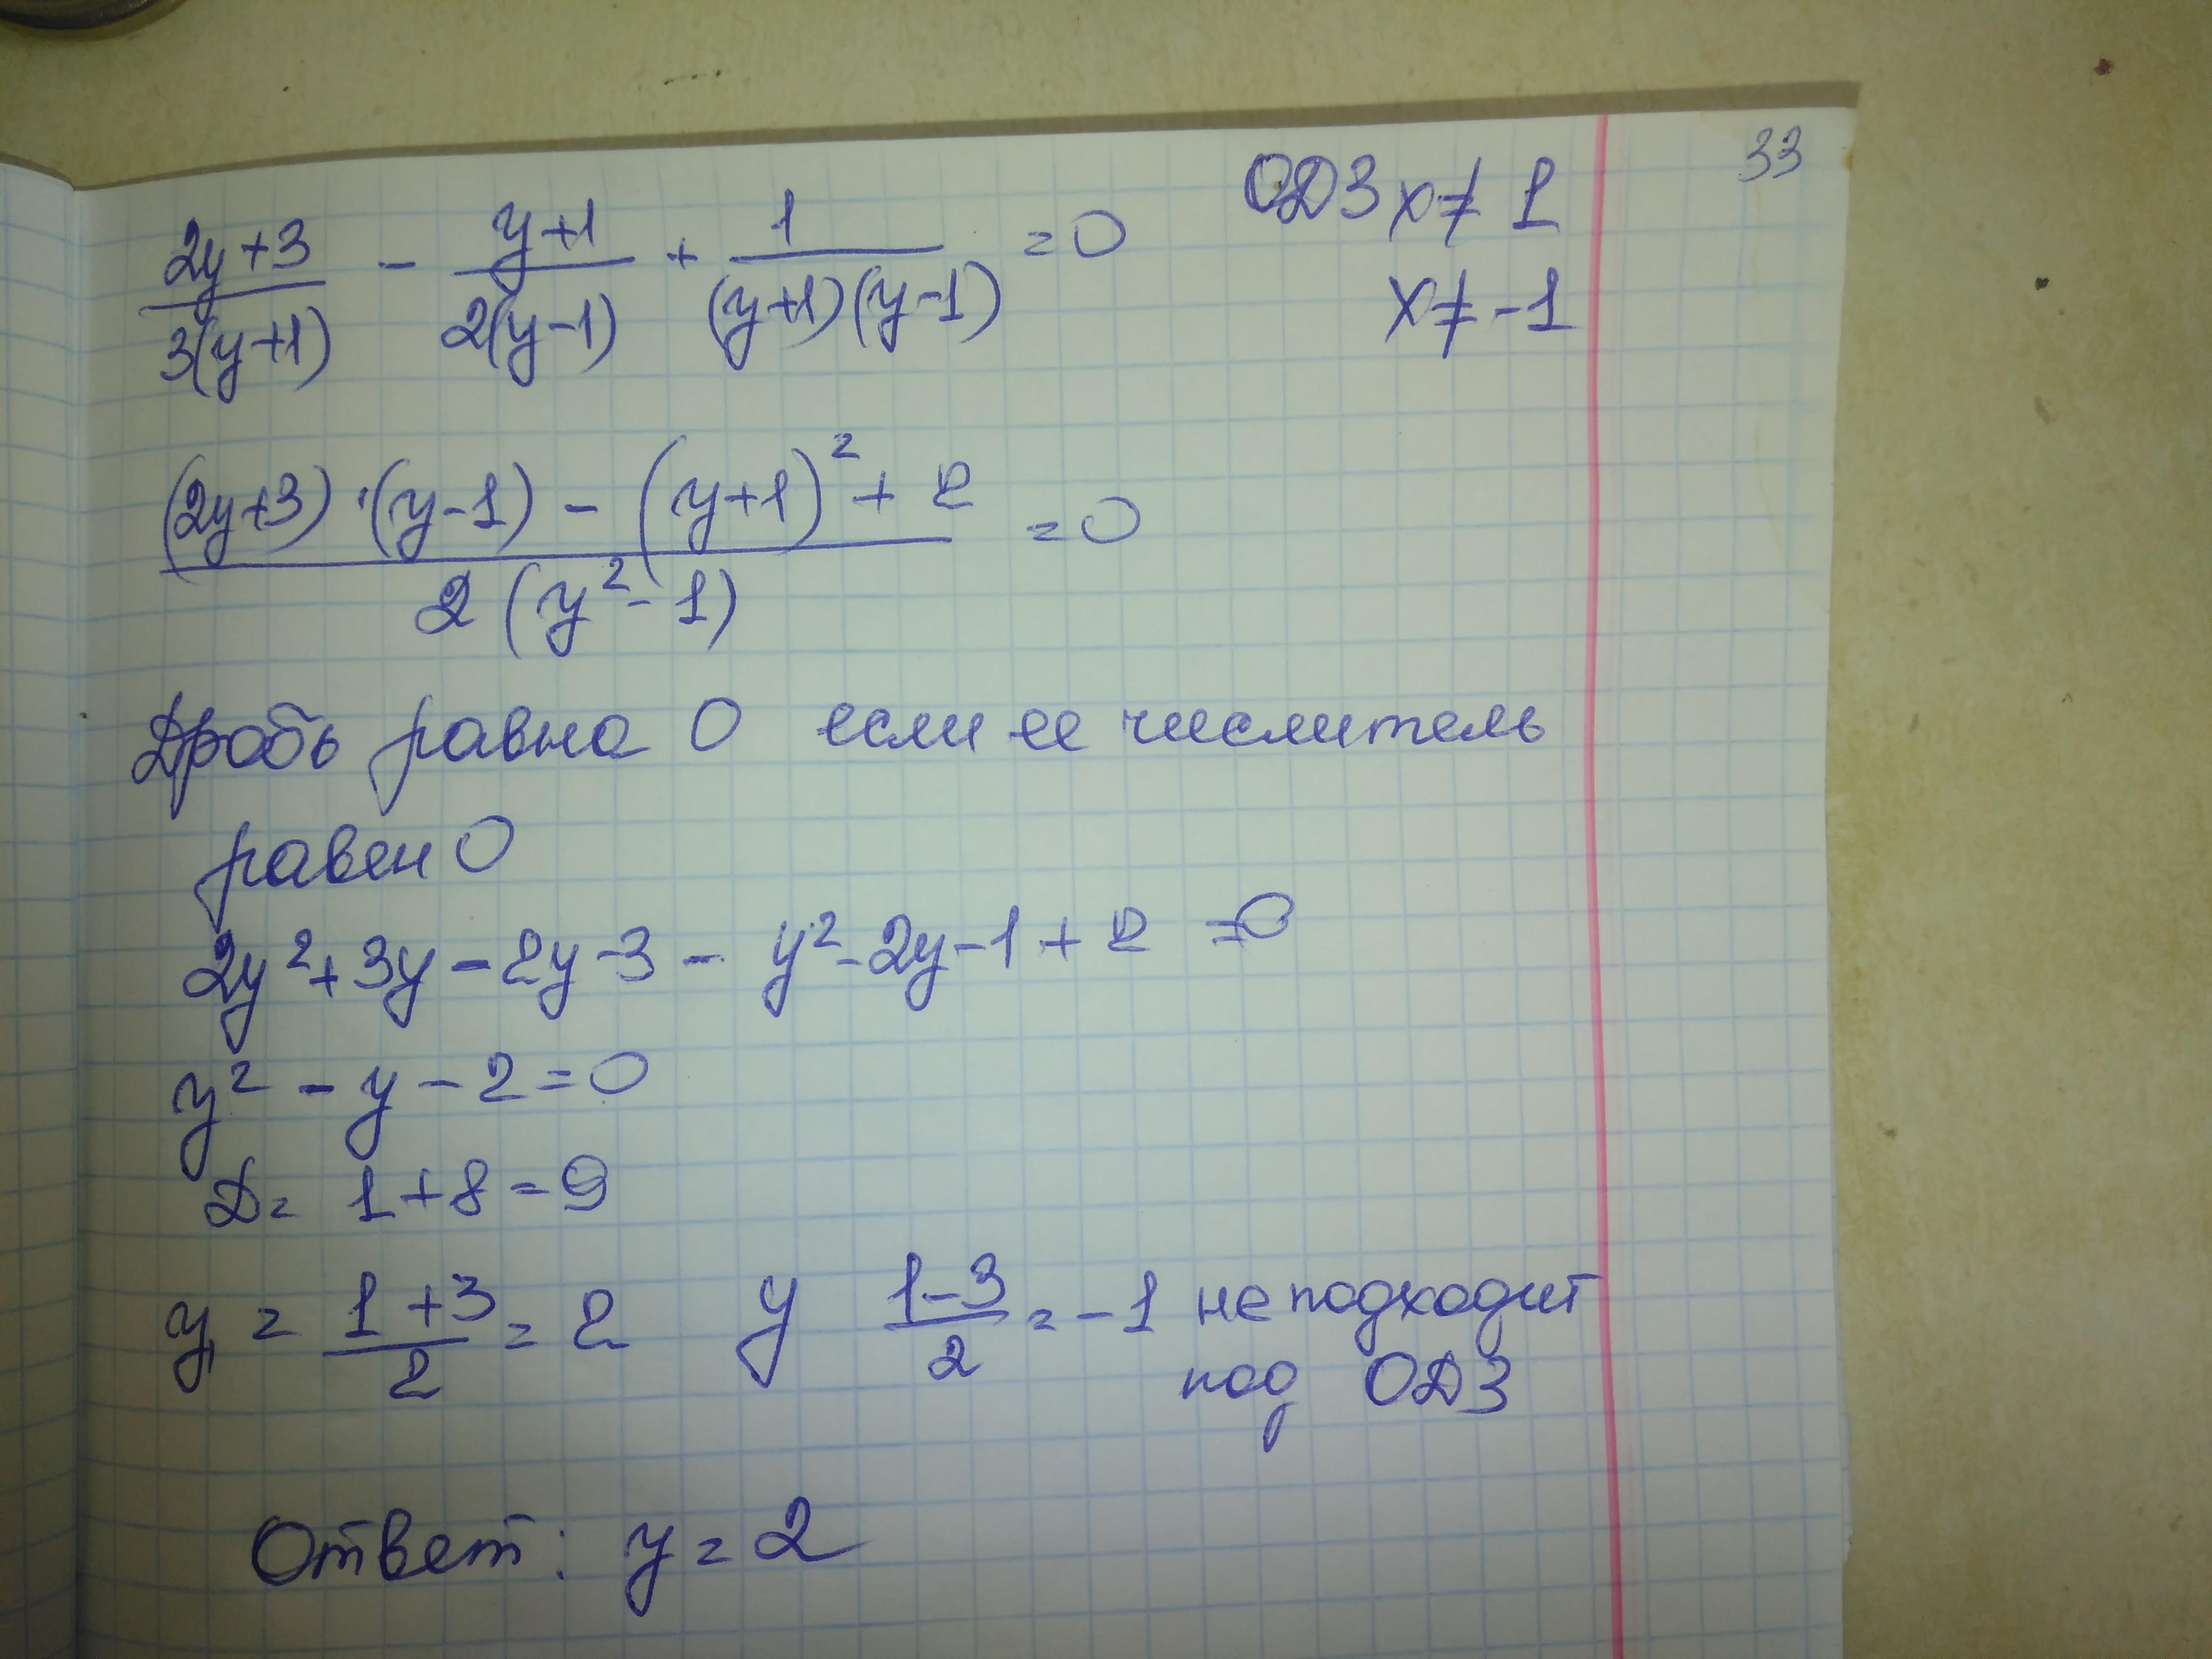 33
(2y+3)/(3(y+1)) - (y+1)/(2(y-1)) + 1/((y+1)(y-1)) = 0 ОДЗ x ≠ 1
x ≠ -1
((2y+3)·(y-1) - (y+1)² + 2)/(2(y²-1)) = 0
Дробь равна 0 если ее числитель
равен 0
2y²+3y-2y-3-y²-2y-1+2=0
y²-y-2=0
Д= 1+8=9
y = (1+3)/2 = 2 y (1-3)/2 = -1 не подходит
под ОДЗ
Ответ: y=2